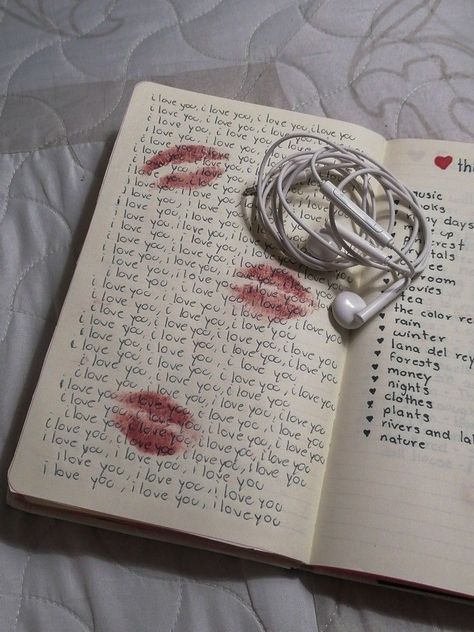 i love you, i love you, i love you, i love you
i love you, i love you, i love you, i love you
i love you, i love you, i love you, i love you
i love you, i love you, i love you
i love you, i love you, i love you
i love you, i love you
i love you, i love you
i love you, i love you
i love you, i love you
i love you, i love you
i love you, i love you, i love you
i love you, i love you, i love you
i love you, i love you, i love you
i love you, i love you, i love you
i love you, i love you, i love you, i love you
i love you, i love you, i love you, i love you
i love you, i love you, i love you, i love you
i love you, i love you, i love you, i love you
i love you, i love you, i love you, i love you
i love you, i love you, i love you, i love you
i love you, i love you, i love you, i love you
i love you, i love you, i love you, i love you
i love you, i love you, i love you, i love you
i love you, i love you, i love you
i love you, i love you, i love you
music
days
up
room
movies
tea
the color re
rain
winter
lana del rey
forests
money
nights
clothes
plants
rivers and lak
nature